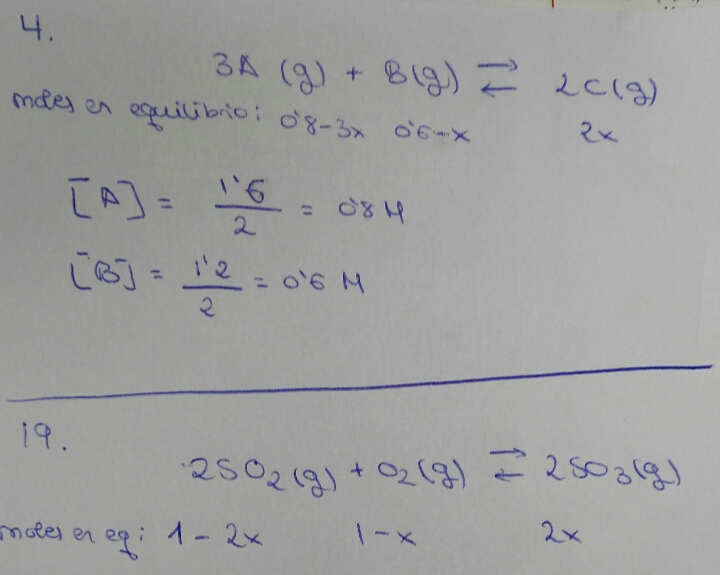 4.
3A (g) + B(g) ⇄ 2C(g)
moles en equilibrio: 0'8-3x 0'6-x 2x
[A] = 1'6/2 = 0'8 M
[B] = 1'2/2 = 0'6 M
19.
2SO₂(g) + O₂(g) ⇄ 2SO₃(g)
moles en eq: 1-2x 1-x 2x